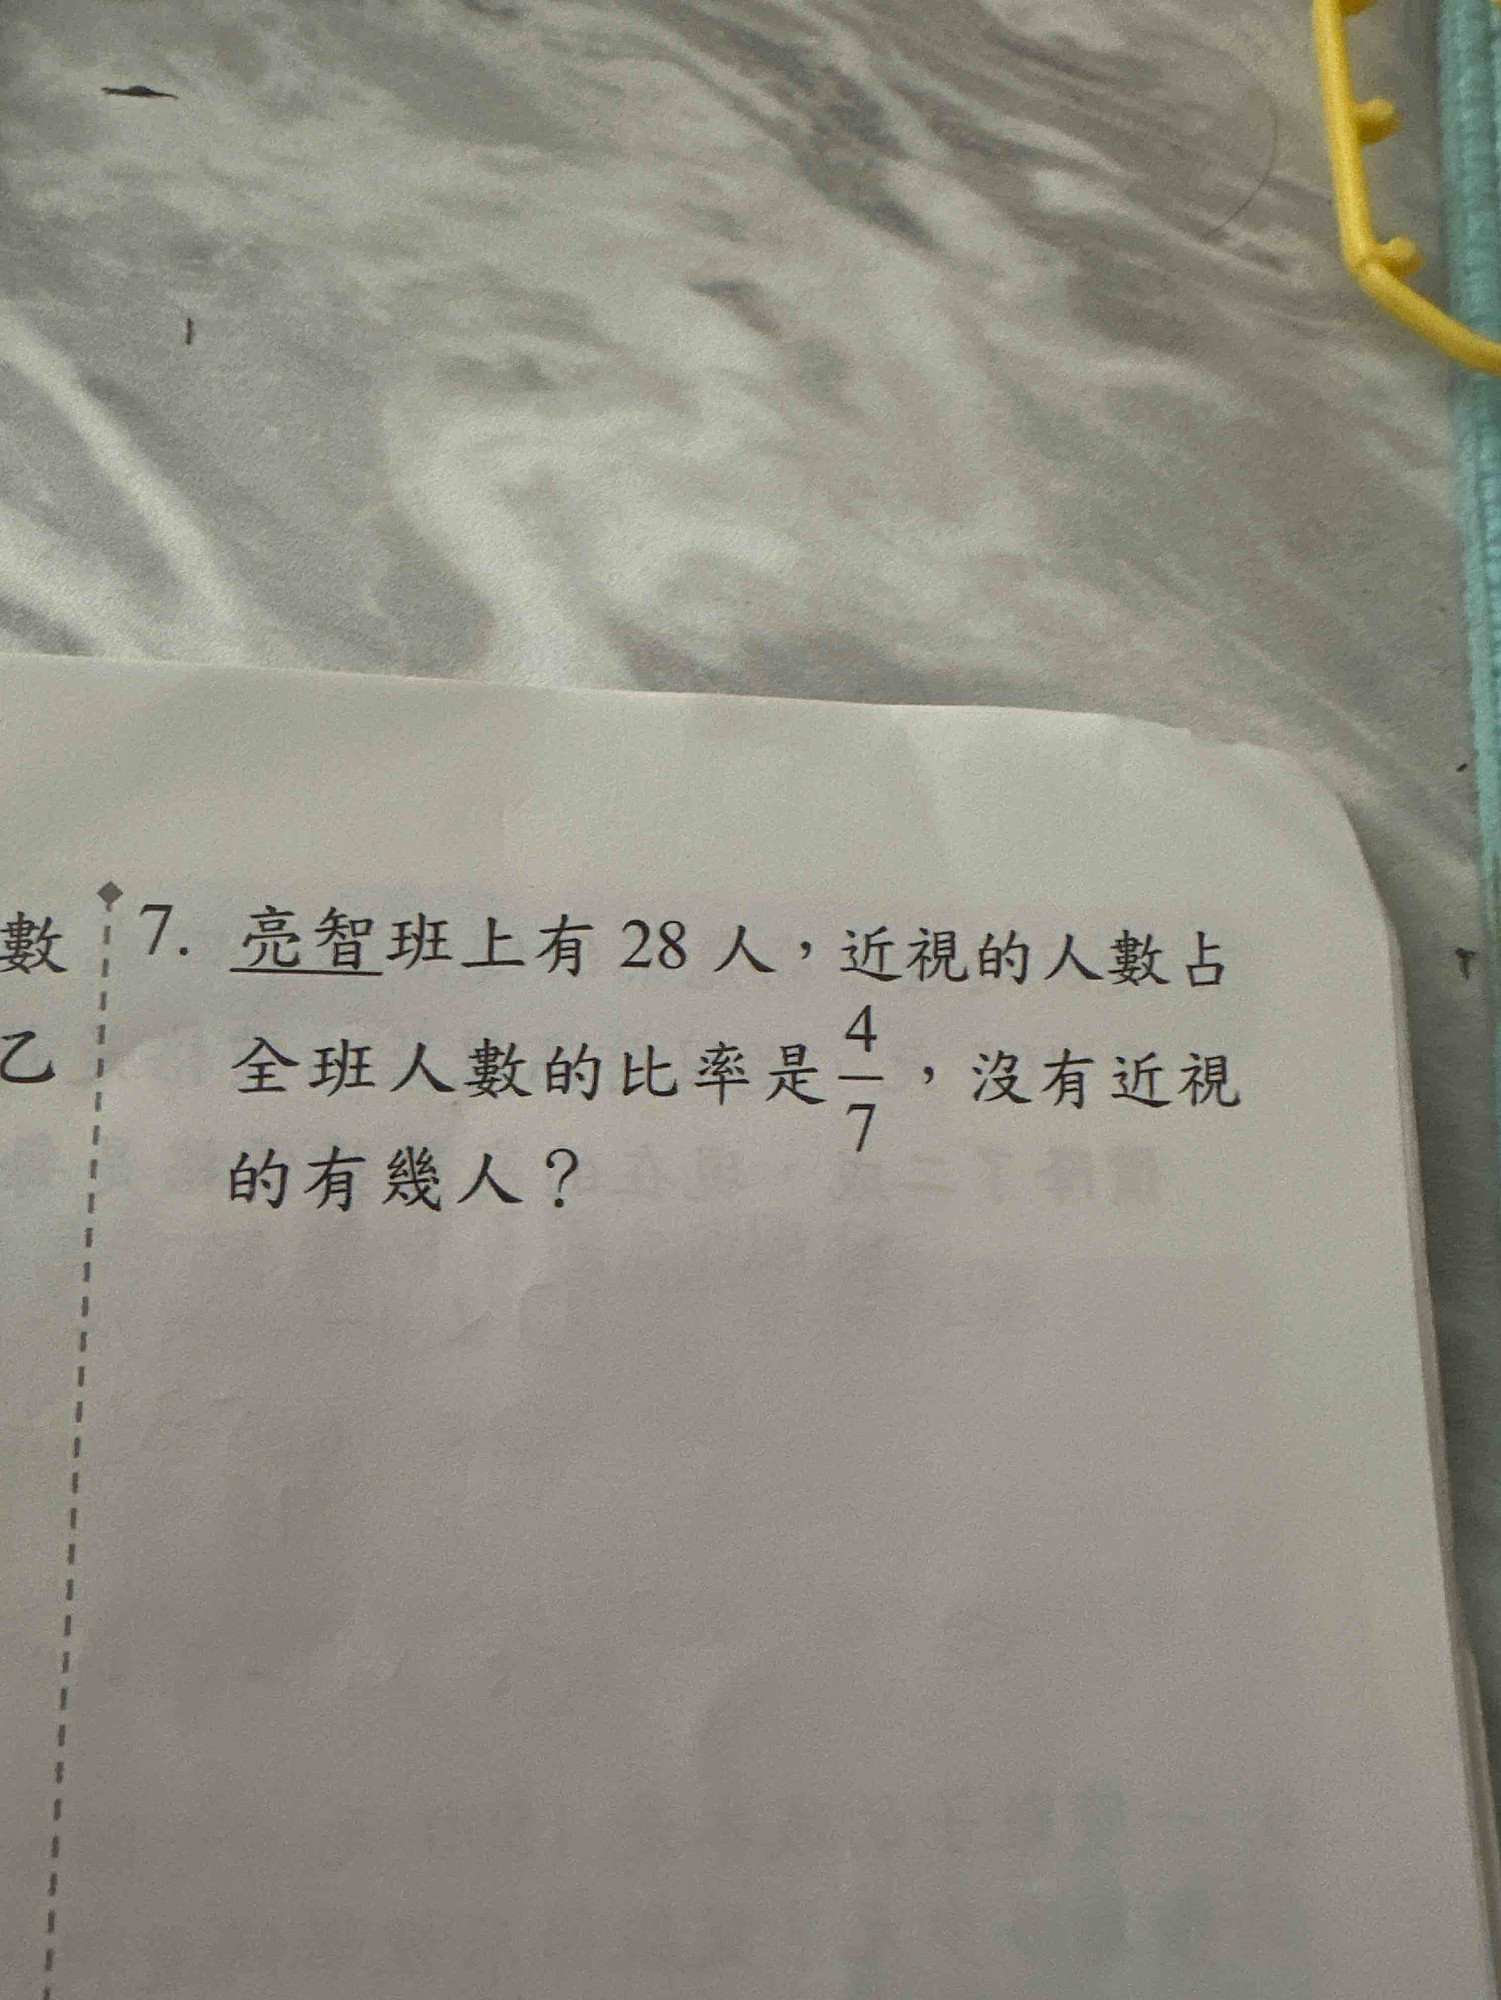 數
乙
7. 亮智班上有 28 人，近視的人數占
全班人數的比率是4/7，沒有近視
的有幾人？